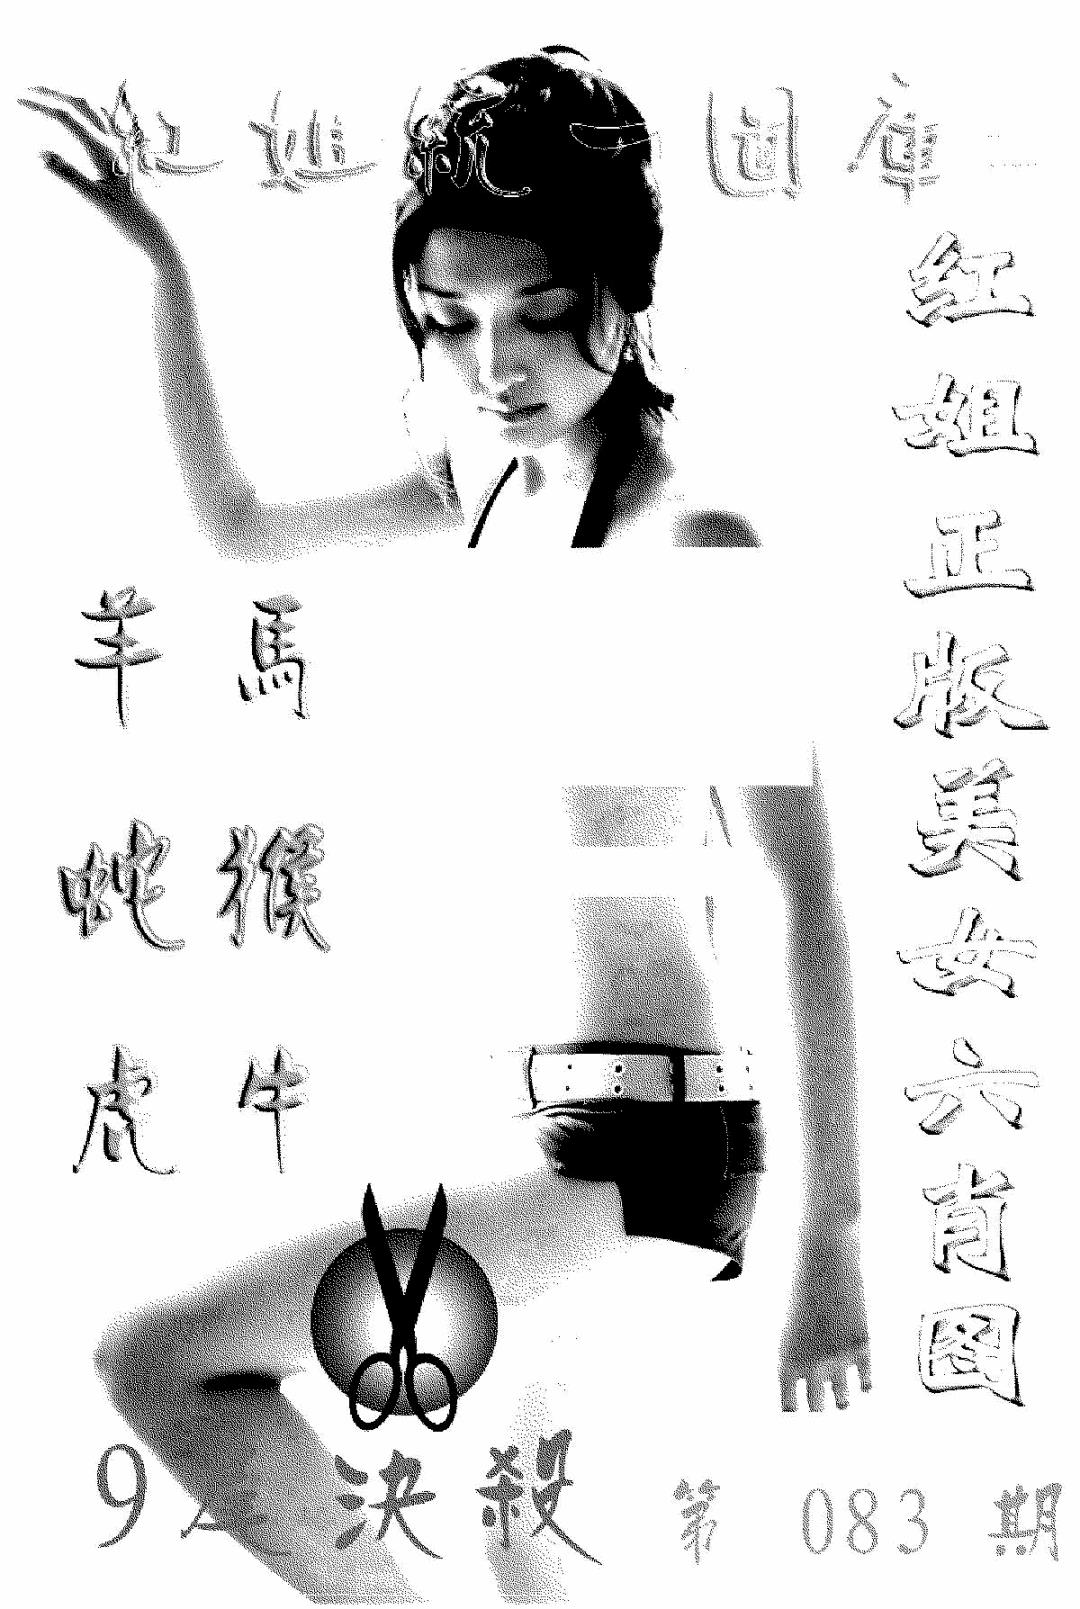 紅姐統一圖庫
紅姐正版美女六肖圖
羊 馬
蛇 猴
虎 牛
9 決殺
第 083 期